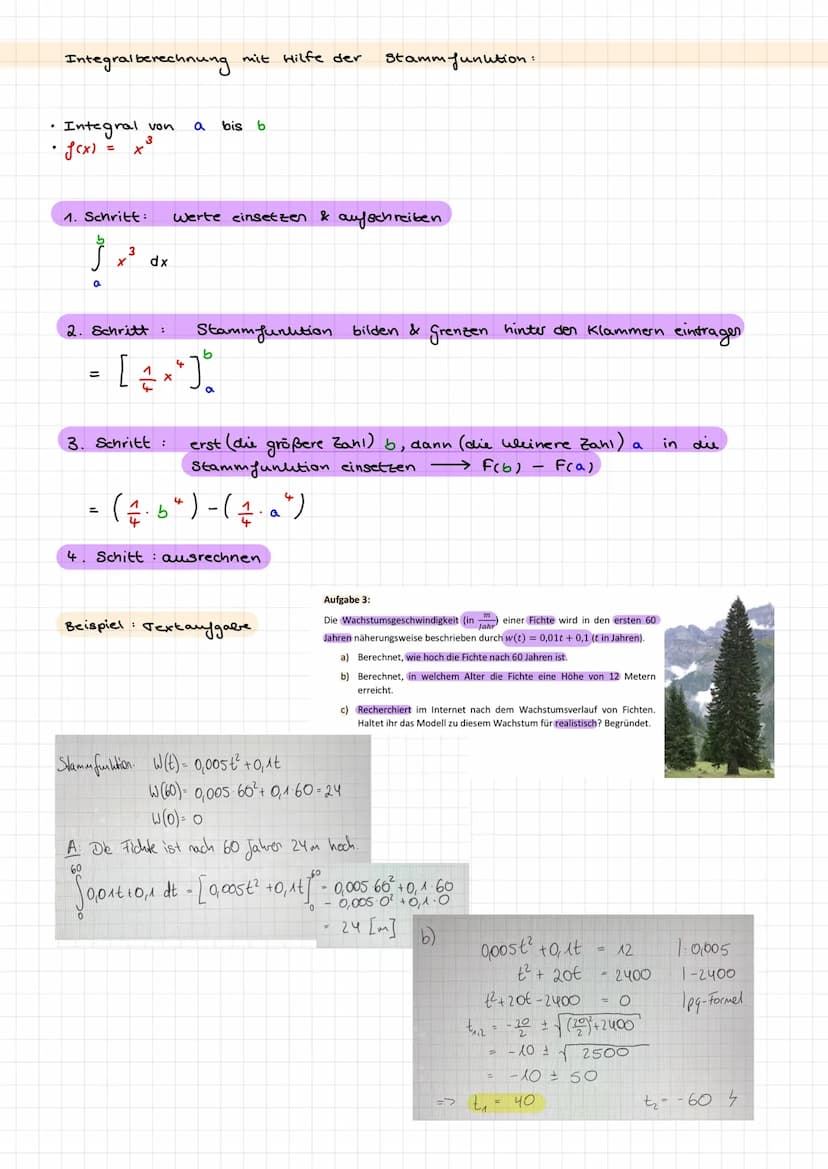 Integralberechnung mit Hilfe der Stammfunktion:
• Integral von a bis b
• f(x) = x³
1. Schritt: Werte einsetzen & aufschreiben
∫ₐᵇ x³ dx
2. Schritt : Stammfunktion bilden & Grenzen hinter den Klammern eintragen
= [1/4 x⁴]ₐᵇ
3. Schritt : erst (die größere Zahl) b, dann (die kleinere Zahl) a in die
Stammfunktion einsetzen ⟶ F(b) - F(a)
= (1/4 · b⁴) - (1/4 · a⁴)
4. Schitt : ausrechnen
Beispiel : Textaufgabe
Aufgabe 3:
Die Wachstumsgeschwindigkeit (in m/Jahr) einer Fichte wird in den ersten 60
Jahren näherungsweise beschrieben durch w(t) = 0,01t + 0,1 (t in Jahren).
a) Berechnet, wie hoch die Fichte nach 60 Jahren ist.
b) Berechnet, in welchem Alter die Fichte eine Höhe von 12 Metern
erreicht.
c) Recherchiert im Internet nach dem Wachstumsverlauf von Fichten.
Haltet ihr das Modell zu diesem Wachstum für realistisch? Begründet.
Stammfunktion: W(t) = 0,005t² + 0,1t
W(60) = 0,005·60² + 0,1·60 = 24
W(0) = 0
A: Die Fichte ist nach 60 Jahren 24 m hoch.
∫₀⁶⁰ 0,01t + 0,1 dt = [0,005t² + 0,1t]₀⁶⁰ = 0,005·60² + 0,1·60
- 0,005·0² + 0,1·0
= 24 [m]
b)
0,005t² + 0,1t = 12 |:0,005
t² + 20t = 2400 |-2400
t² + 20t - 2400 = 0 |pq-Formel
t₁,₂ = -20/2 ± √((20/2)² + 2400)
= -10 ± √2500
= -10 ± 50
=> t₁ = 40 t₂ = -60 ↯